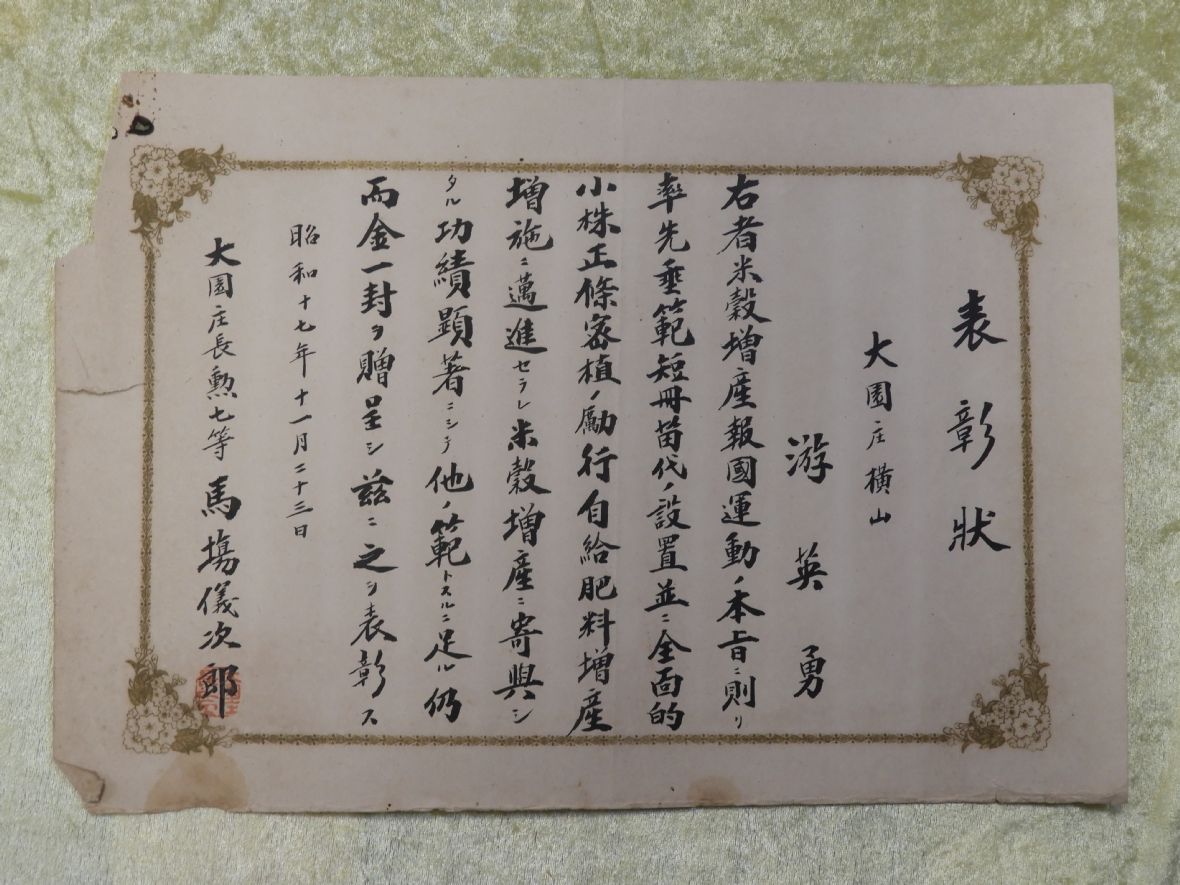 表彰狀
大園庄橫山
游英勇
右者米穀增產報國運動ノ本旨ニ則リ
率先垂範短冊苗代ノ設置並ニ全面的
小株正條密植ノ勵行自給肥料增產
增施ニ邁進セラレ米穀增產ニ寄與シ
タル功績顯著ニシテ他ノ範トスルニ足ル仍
而金一封ヲ贈呈シ茲ニ之ヲ表彰ス
昭和十七年十一月二十三日
大園庄長勲七等馬場儀次郎